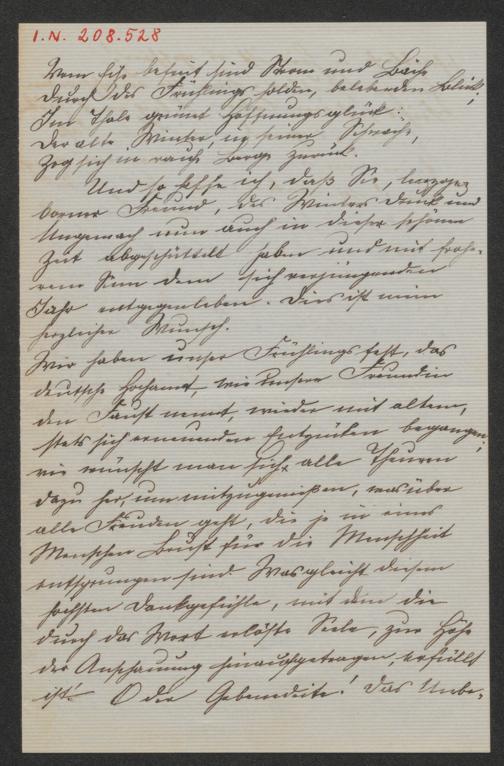 I.N. 208.528
Vom Eise befreit sind Strom und Bäche
Durch des Frühlings holden, belebenden Blick;
Im Thale grünet Hoffnungsglück;
Der alte Winter, in seiner Schwäche,
Zog sich in rauhe Berge zurück.
Und so hoffe ich, daß Sie, hochge-
borner Freund, des Winters Druck und
Ungemach nun auch in dieser schönen
Zeit abgeschüttelt haben und mit frohe-
rem Sinn dem sich verjüngenden
Jahr entgegenleben. Dies ist mein
herzlicher Wunsch.
Wir haben unser Frühlingsfest, das
deutsche Hochamt, wie unsere Freundin
den Faust nennt, wieder mit altem,
stets sich erneuenden Entzücken begangen;
wie wünscht man sich alle Theuren
dazu her, um mitzugenießen, was über
alle Freuden geht, die je in eines
Menschen Brust für die Menschheit
entsprungen sind. Was gleicht diesem
höchsten Dankgefühle, mit dem die
durch das Wort erlöste Seele, zur Höhe
der Anschauung hinaufgetragen, erfüllt
ist! O der Gebenedeite! Das Unbe-